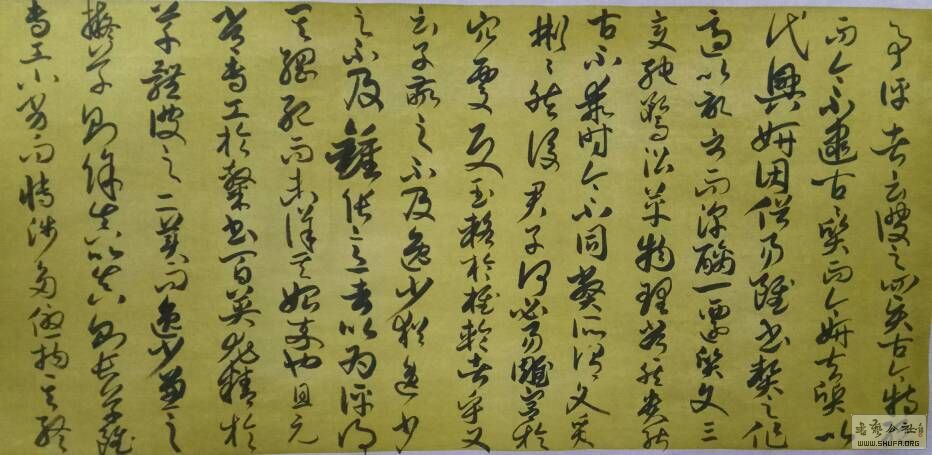 事評者云彼之四賢古今特
而今不逮古質而今妍夫質以
代興妍因俗易雖書契之作
適以記言而淳醨一遷質文三
變馳騖沿革物理常然貴能
古不乖時今不同弊所謂文質
彬〻然後君子何必易雕宮於
穴處反玉輅於椎輪者乎又
云子敬之不及逸少猶逸少
之不及鍾張意者以為評得
其綱紀而未詳其始卒也且元
常專工於隸書百英尤精於
草體彼之二美而逸少兼之
擬草則餘真比真則長草雖
專工小劣而博涉多優揔其終
書藝公社
WWW.SHUFA.ORG